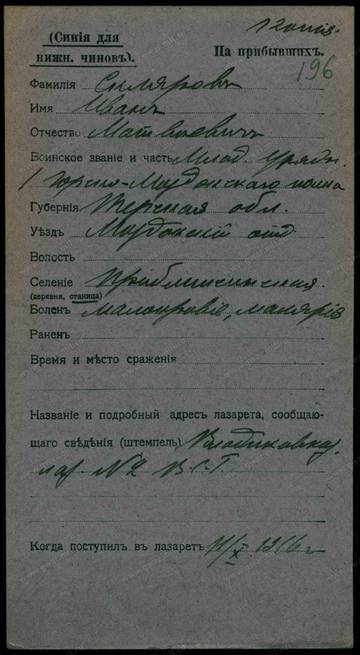 (Синія для
нижн. чиновъ).
На прибывшихъ.
196
Фамилія Скляровъ
Имя Иванъ
Отчество Матвѣевичъ
Воинское званіе и часть Млад. Урядн.
1 Горско-Моздокскаго полка
Губернія Терская обл.
Уѣздъ Моздокскій отд
Волость
Селеніе
(деревня, станица)
Боленъ малокровіе, малярія
Раненъ
Время и мѣсто сраженія
Названіе и подробный адресъ лазарета, сообщаю-
щаго свѣдѣнія (штемпель) Владикавказ.
лаз №2 В.С.Г.
Когда поступилъ въ лазаретъ 11/X 1916 г